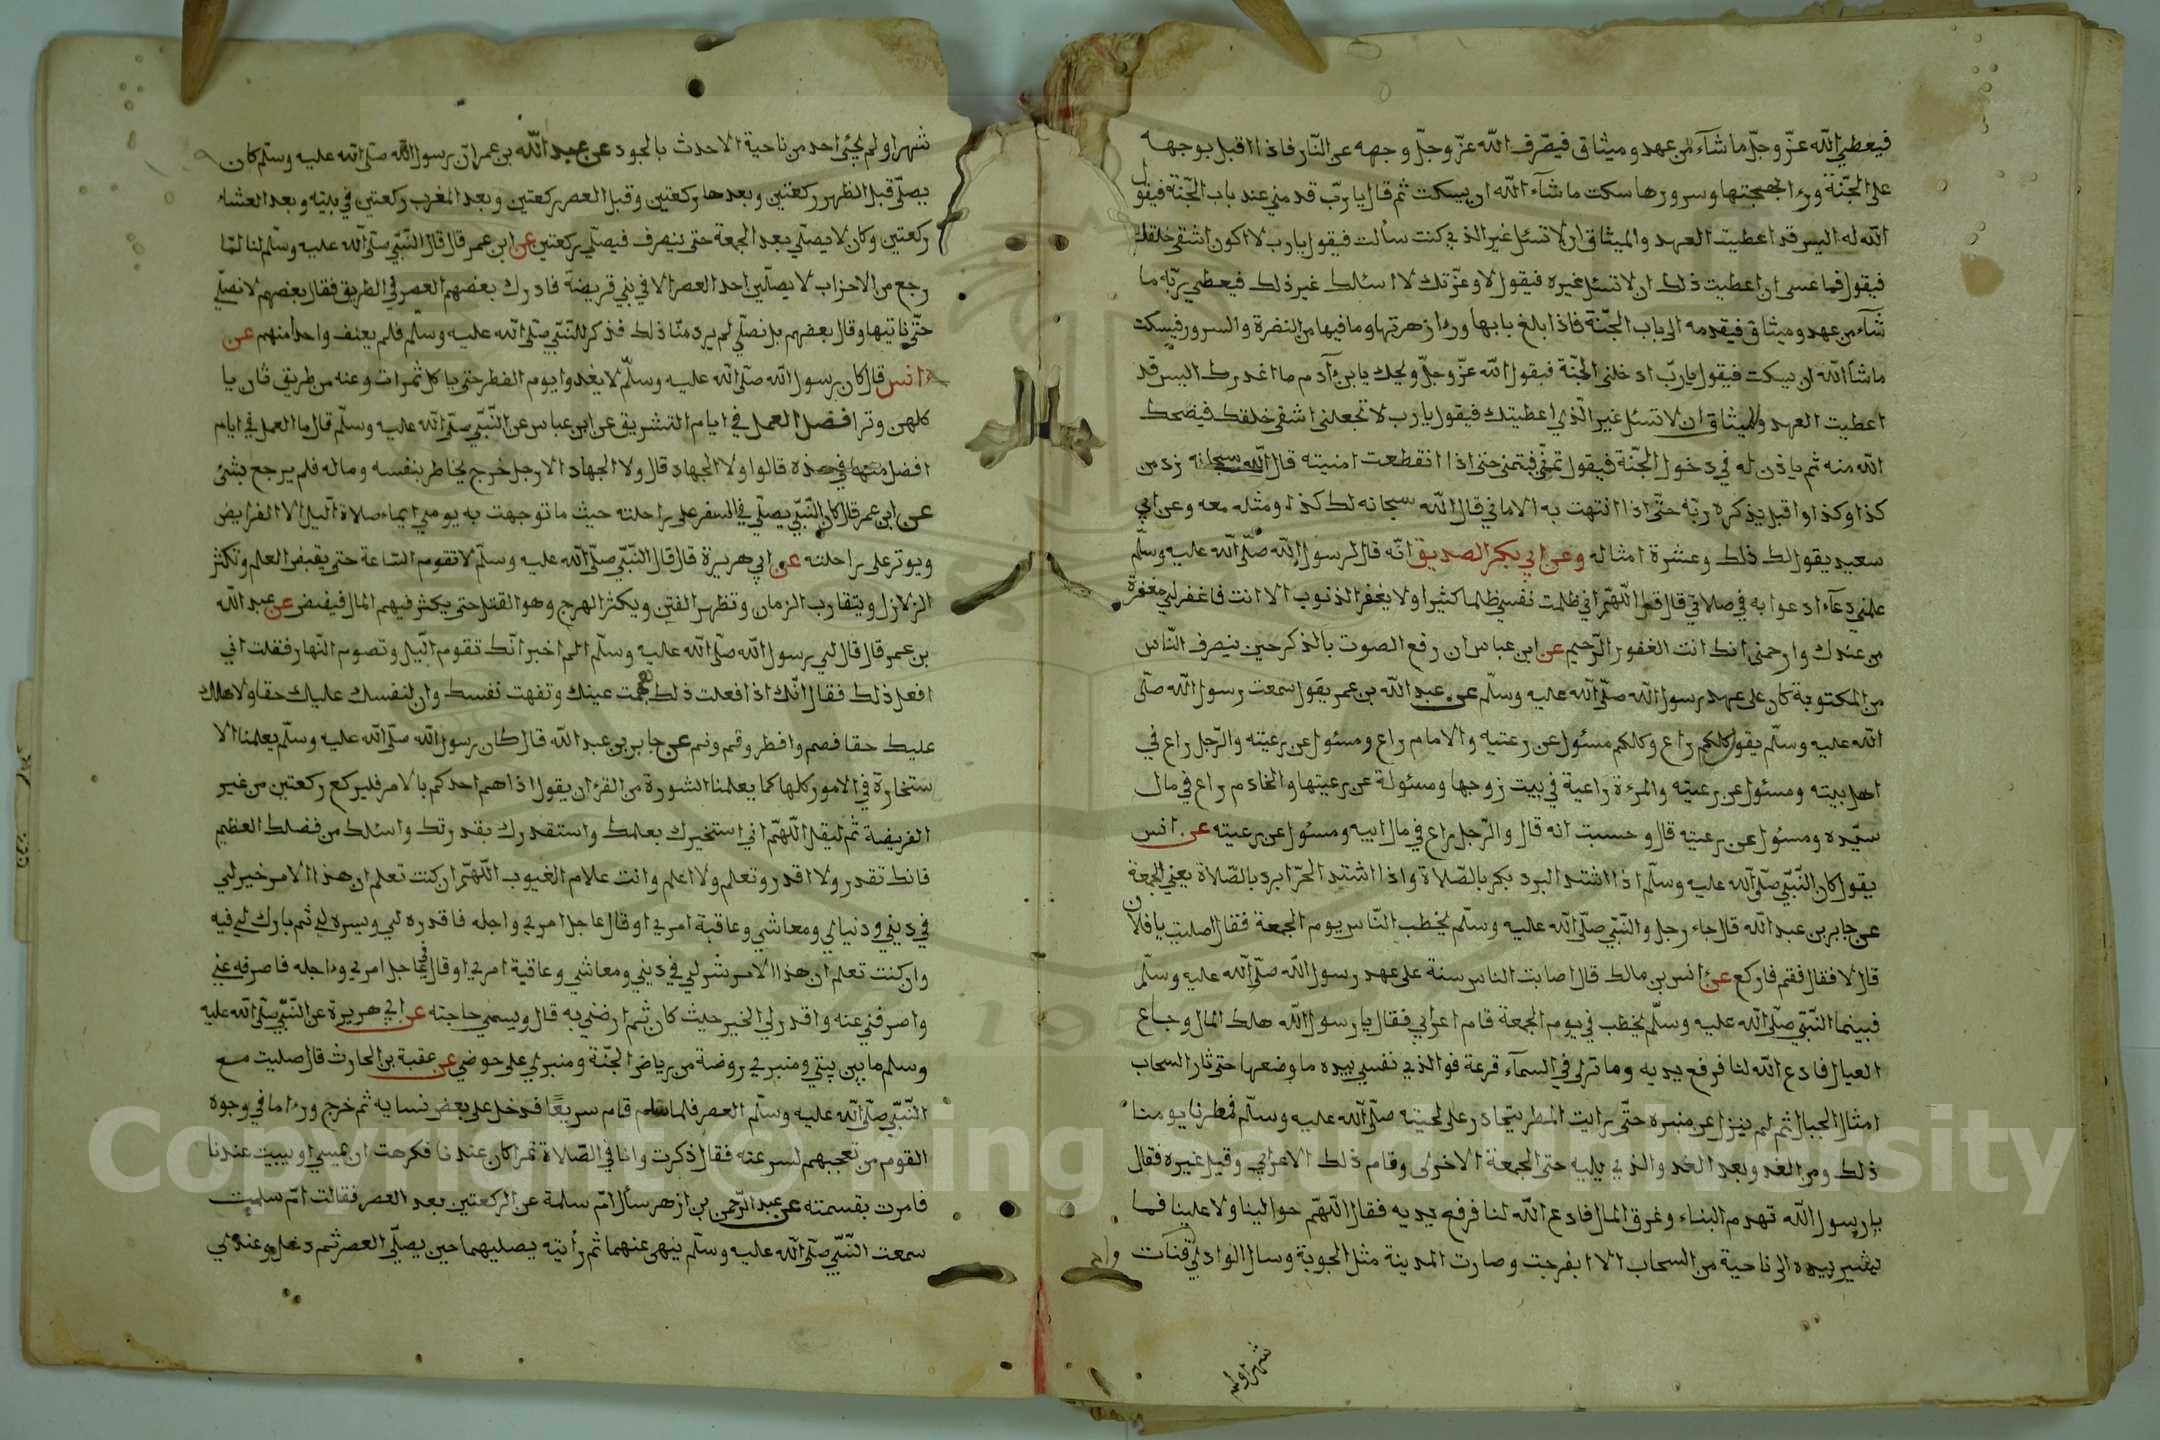 فيعطي الله عزّ وجلّ ما شآء من عهد وميثاق فيصرف الله عزّ وجلّ وجهه عن النّار فاذا اقبل بوجهه
على الجنّة ورءا بهجتها وسرورها سكت ما شآء الله ان يسكت ثم قال يا ربّ قدمني عند باب الجنّة فيقول
الله له اليس قد اعطيت العهد والميثاق ان لا تسئل غير الذي كنت سألت فيقول يا رب لا اكون اشقى خلقك
فيقول فما عسى ان اعطيت ذلك ان لا تسئل غيره فيقول لا وعزّتك لا اسئلك غير ذلك فيعطي ربّه ما
شآء من عهد وميثاق فيقدمه الى باب الجنّة فاذا بلغ بابها ورءا زهرتها وما فيها من النضرة والسرور فيسكت
ما شآ الله ان يسكت فيقول يا ربّ ادخلني الجنّة فيقول الله عزّ وجلّ ويحك يا بن آدم ما اغدرك اليس قد
اعطيت العهد والميثاق ان لا تسئل غير الّذي اعطيتك فيقول يا رب لا تجعلني اشقى خلقك فيضحك
الله منه ثم ياذن له في دخول الجنّة فيقول تمنّ فيتمنى حتى اذا انقطعت امنيته قال الله سبحانه زد من
كذا وكذا اقبل يذكره ربّه حتّى اذا انتهت به الاماني قال الله سبحانه لك كذا ومثله معه وعن ابي
سعيد يقول لك ذلك وعشرة امثاله وعن ابي بكر الصديق انّه قال لرسول الله صلّى الله عليه وسلّم
علمني دعآء ادعوا به في صلاتي قال قل اللّهمّ اني ظلمت نفسي ظلما كثيرا ولا يغفر الذنوب الا انت فاغفر لي مغفرة
من عندك وارحمني انك انت الغفور الرّحيم عن ابن عباس ان رفع الصوت بالذكر حين ينصرف النّاس
من المكتوبة كان على عهد رسول الله صلّى الله عليه وسلّم عن عبد الله بن عمر يقول سمعت رسول الله صلّى
الله عليه وسلّم يقول كلكم راع وكلكم مسئول عن رعتيه والامام راع ومسئول عن رعيته والرّجل راع في
اهل بيته ومسئول عن رعيته والمرءة راعية في بيت زوجها ومسئولة عن رعيتها والخادم راع في مال
سيّده ومسئول عن رعيته قال وحسبت انه قال والرّجل راع في مال ابيه ومسئول عن رعيته عن انس
يقول كان النّبيّ صلّى الله عليه وسلّم اذا اشتد البرد بكر بالصّلاة واذا اشتد الحرّ ابرد بالصّلاة يعني الجمعة
عن جابر بن عبد الله قال جاء رجل والنّبيّ صلّى الله عليه وسلّم يخطب النّاس يوم الجمعة فقال اصليت يا فلان
قال لا فقال فقم فاركع عن انس بن مالك قال اصابت الناس سنة على عهد رسول الله صلّى الله عليه وسلّم
فبينما النّبيّ صلّى الله عليه وسلّم يخطب في يوم الجمعة قام اعرابي فقال يا رسول الله هلك المال وجاع
العيال فادع الله لنا فرفع يديه وما ترى في السمآء قزعة فوالذي نفسي بيده ما وضعها حتى ثار السحاب
امثال الجبال ثم لم ينزل عن منبره حتّى رايت المطر يتحادر على لحيته صلّى الله عليه وسلّم فمطرنا يومنا
ذلك ومن الغد وبعد الغد والذي يليه حتى الجمعة الاخرى وقام ذلك الاعرابي وقيل غيره فقال
يا رسول الله تهدم البناء وغرق المال فادع الله لنا فرفع يديه فقال اللّهمّ حوالينا ولا علينا فما
يشير بيده الى ناحية من السحاب الا انفرجت وصارت المدينة مثل الجوبة وسال الوادي قنات
شهرا ولم
شهرا ولم يجئ احد من ناحية الا حدث بالجود عن عبد الله بن عمر انّ رسول الله صلّى الله عليه وسلّم كان
يصلّي قبل الظهر ركعتين وبعدها ركعتين وقبل العصر ركعتين وبعد المغرب ركعتين في بيته وبعد العشاء
ركعتين وكان لا يصلّي بعد الجمعة حتى ينصرف فيصلّي ركعتين عن ابن عمر قال قال النّبيّ صلّى الله عليه وسلّم لنا لمّا
رجع من الاحزاب لا يصلّين احد العصر الا في بني قريضة فادرك بعضهم العصر في الطريق فقال بعضهم لا نصلّي
حتّى ناتيها وقال بعضهم بل نصلّي لم يرد منّا ذلك فذكر للنّبيّ صلّى الله عليه وسلّم فلم يعنف واحدا منهم عن
انس قال كان رسول الله صلّى الله عليه وسلّم لا يغدوا يوم الفطر حتى ياكل تمرات وعنه من طريق ثان يا
كلهن وترا فضل العمل في ايام التشريق عن ابن عباس عن النّبيّ صلّى الله عليه وسلّم قال ما العمل في ايام
افضل منها في هذه قالوا ولا الجهاد قال ولا الجهاد الا رجل خرج يخاطر بنفسه وماله فلم يرجع بشئ
عن ابن عمر قال كان النّبيّ يصلّي في السفر على راحلته حيث ما توجهت به يومي ايماء صلاة الّيل الا الفرايض
ويوتر على راحلته عن ابي هريرة قال قال النّبيّ صلّى الله عليه وسلّم لا تقوم السّاعة حتى يقبض العلم وتكثر
الزلازل ويتقارب الزمان وتظهر الفتن ويكثر الهرج وهو القتل حتى يكثر فيهم المال فيفيض عن عبد الله
بن عمر قال قال لي رسول الله صلّى الله عليه وسلّم الم اخبر انّك تقوم الّيل وتصوم النّهار فقلت اني
افعل ذلك فقال انّك اذا فعلت ذلك هجمت عينك وتفهت نفسك وان لنفسك عليك حقا ولاهلك
عليك حقا فصم وافطر وقم ونم عن جابر بن عبد الله قال كان رسول الله صلّى الله عليه وسلّم يعلمنا الا
ستخارة في الامور كلها كما يعلمنا الشورة من القرءان يقول اذا هم احدكم بالامر فليركع ركعتين من غير
الفريضة ثمّ ليقل اللّهمّ اني استخيرك بعلمك واستقدرك بقدرتك واسئلك من فضلك العظيم
فانك تقدر ولا اقدر وتعلم ولا اعلم وانت علام الغيوب اللّهمّ ان كنت تعلم ان هذا الامر خير لي
في ديني ودنياي ومعاشي وعاقبة امري او قال عاجل امري واجله فاقدره لي ويسره لي ثم بارك لي فيه
وان كنت تعلم ان هذا الامر شر لي في ديني ومعاشي وعاقبة امري او قال في عاجل امري وءاجله فاصرفه عني
واصرفني عنه واقدر لي الخير حيث كان ثم ارضني به قال ويسمي حاجته عن ابي هريرة عن النّبيّ صلّى الله عليه
وسلم ما بين بيتي ومنبري روضة من رياض الجنّة ومنبري على حوضي عن عقبة بن الحارث قال صليت مع
النّبيّ صلّى الله عليه وسلّم العصر فلما سلم قام سريعًا فدخل على بعض نسايه ثم خرج ورءا ما في وجوه
القوم من تعجبهم لسرعته فقال ذكرت وانا في الصّلاة تمرا كان عندنا فكرهت ان يمسي او يبيت عندنا
فامرت بقسمته عن عبد الرّحمن بن ازهر سأل امّ سلمة عن الركعتين بعد العصر فقالت امّ سلمة
سمعت النّبيّ صلّى الله عليه وسلّم ينهى عنهما ثم رأيته يصليهما حين يصلّي العصر ثم دخل وعندي
Copyright © King Saud University